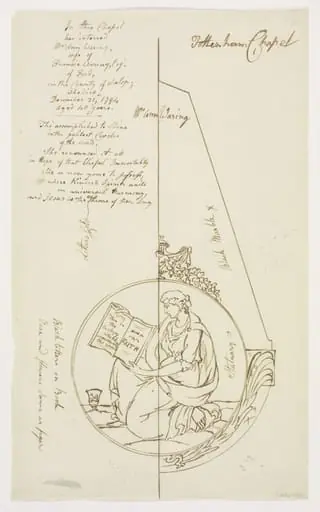 In this Chapel
lies interred
Mrs Ann Waring,
wife of
Francis Waring, Esqr
of
in the County of Salop;
She died
December 21, 1784
Aged 40 years.
Tho accomplished to Shine
in the politest Circles
of the world,
She renounced it all
in Hope of that blessed Immortality
she is now gone to possess,
where Kindred Spirits unite
in universal Harmony,
and Jesus is the Theme of their Song
Tottenham Chapel
Mrs Ann Waring
Black Marble X
Statuary
FAITH
Black letters on Book
Vase and flames